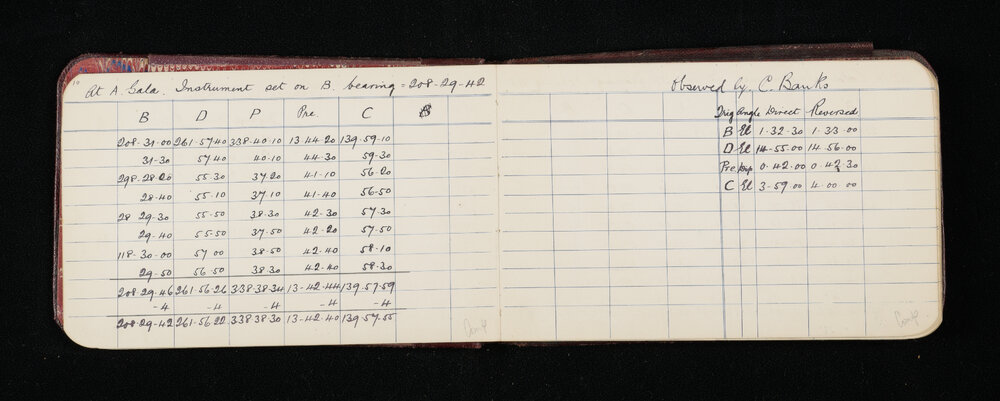 10
At A. Gala. Instrument set on B. bearing = 208-29-42
B D P Pre C B
208-31-00 261-57-40 338-40-10 13-44-20 139-59-10
31-30 57 40 40-10 44-30 59-30
298-28-20 55-30 37-20 41-10 56-20
28-40 55-10 37-10 41-40 56-50
28 29-30 55-50 38-30 42-30 57-30
29-40 55-50 37-50 42-20 57-50
118-30-00 57 00 38-50 42-40 58-10
29-50 56-50 38-30 42-40 58-30
208-29-46 261-56-26 338-38-34 13-42-44 139-57-59
-4 -4 -4 -4 -4
208-29-42 261-56-22 338 38-30 13-42-40 139-57-55
Comp
Observed by C. Banks
Trig Angle Direct Reversed
B El 1-32-30 1-33-00
D El 14-55-00 14-56-00
Pre Dep 0-42-00 0-42-30
C El 3-59-00 4-00-00
Comp